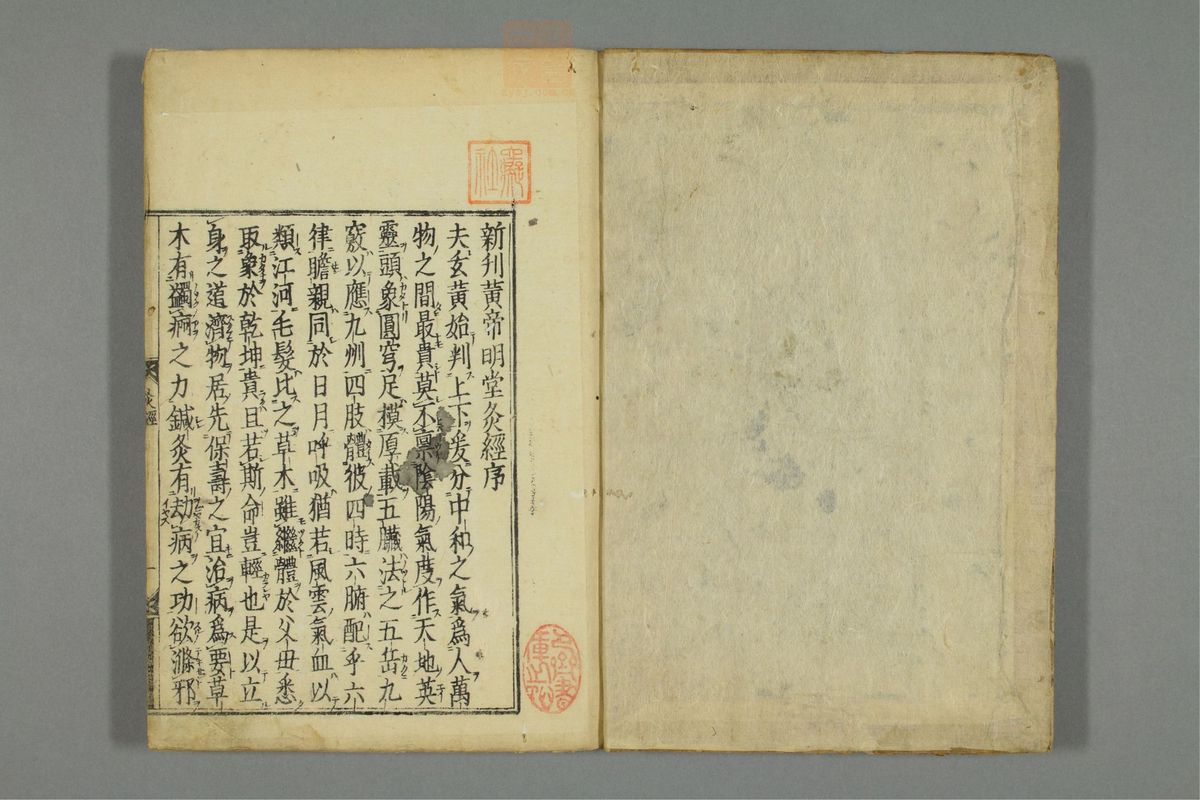 新刋黄帝明堂灸經序
夫玄黄始判上下爰分中和之氣爲人萬
物之間最貴莫不禀陰陽氣度作天地英
靈頭象圓穹足模厚載五臟法之五岳九
竅以應九州四肢體彼四時六腑配乎六
律瞻親同於日月呼吸猶若風雲氣血以
類江河毛髮比之草木雖繼體於父母悉
取象於乾坤貴且若斯命豈輕也是以立
身之道濟物居先保壽之宜治病爲要草
木有蠲痾之力鍼灸有劫病之功欲滌邪
灸經